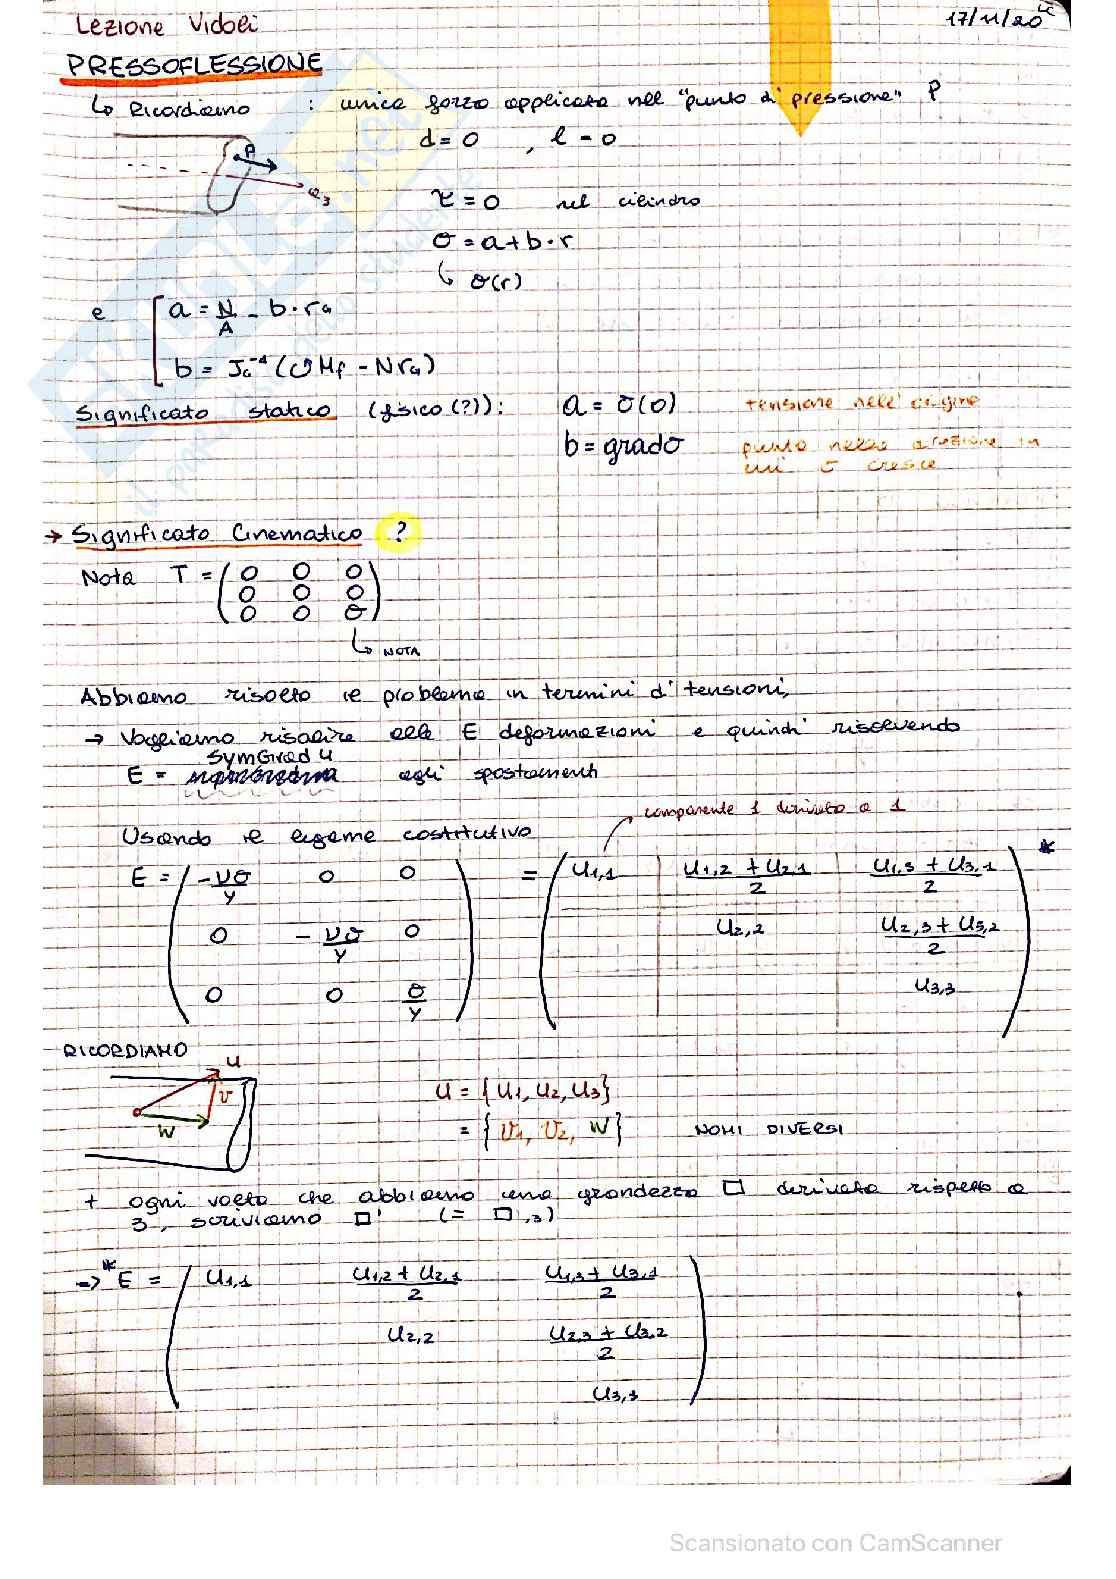 Lezione Vidoli
17/11/20
PRESSOFLESSIONE
↳ Ricordiamo : unica forza applicata nel "punto di pressione" P
d = 0 , l = 0
P
e3
τ = 0 nel cilindro
σ = a + b · r
↳ σ(r)
e { a = N/A - b · rG
b = JG^-1 (↺ Mf - N rG)
Significato statico (fisico (?)): a = σ(0) tensione nell'origine
b = grad σ punto nella direzione in
cui σ cresce
→ Significato Cinematico ?
Nota T = ( 0 0 0
0 0 0
0 0 σ )
↳ NOTA
Abbiamo risolto il problema in termini di tensioni,
→ Vogliamo risalire alle E deformazioni e quindi risolvendo
SymGrad u
E = agli spostamenti
componente 1 derivata a 1
Usando il legame costitutivo
E = ( -νσ/Y 0 0 = ( u1,1 (u1,2 + u2,1)/2 (u1,3 + u3,1)/2 *
0 -νσ/Y 0 u2,2 (u2,3 + u3,2)/2
0 0 σ/Y ) u3,3 )
RICORDIAMO
u
v
w
u = {u1, u2, u3}
= {v1, v2, w} NOMI DIVERSI
+ ogni volta che abbiamo una grandezza □ derivata rispetto a
3, scriviamo □' (= □,3)
→ * E = ( u1,1 (u1,2 + u2,1)/2 (u1,3 + u3,1)/2
u2,2 (u2,3 + u3,2)/2
u3,3 )
Scansionato con CamScanner